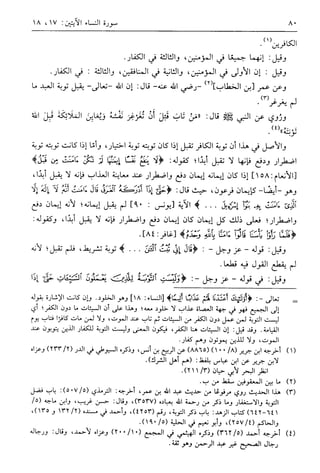 ٨٠ سورة النساء الآيتين: ١٧، ١٨
الكافرين(١).
وقيل: إنهما جميعًا في المؤمنين، والثالثة في الكفار.
وقيل: إن الأولى في المؤمنين، والثانية في المنافقين، والثالثة: في الكفار.
وعن عمر [بن الخطاب](٢) -رضي الله عنه- قال: إن الله -تعالى- يقبل توبة العبد ما
لم يغرغر(٣).
وروي عن النبي ﷺ قال: «مَنْ تَابَ قَبْلَ أَنْ تُغَرْغِرَ نَفْسُهُ وَيُعَايِنَ المَلَائِكَةَ قَبِلَ اللهُ
تَوْبَتَهُ»(٤).
والأصل في هذا أن توبة الكافر تقبل إذا كان توبته توبة اختيار، وأمّا إذا كانت توبته توبة
اضطرار ودفع فإنها لا تقبل أبدًا؛ كقوله: ﴿لَا يَنفَعُ نَفْسًا إِيمَانُهَا لَمْ تَكُنْ ءَامَنَتْ مِن قَبْلُ﴾
[الأنعام: ١٥٨] إذا كان إيمانه إيمان دفع واضطرار عند معاينة العذاب فإنه لا يقبل أبدًا،
وهو -أيضًا- كإيمان فرعون، حيث قال: ﴿حَتَّى إِذَا أَدْرَكَهُ الْغَرَقُ قَالَ ءَامَنتُ أَنَّهُ لَا إِلَهَ إِلَّا
... ﴾ الآية [يونس: ٩٠] لم يقبل إيمانه؛ لأنه إيمان دفع
واضطرار؛ فعلى ذلك كل إيمان كان إيمان دفع واضطرار فإنه لا يقبل أبدًا، وكقوله:
﴿فَلَمَّا رَأَوْا بَأْسَنَا قَالُوا ءَامَنَّا بِاللهِ وَحْدَهُ﴾ [غافر: ٨٤].
وقيل: قوله -عز وجل-: ﴿قَالَ إِنِّي تُبْتُ الْـَٔنَ ... ﴾ توبة تشريط، فلم تقبل؛ لأنه
لم يقطع القول فيه قطعا.
وقيل: في قوله -عز وجل-: ﴿وَلَيْسَتِ التَّوْبَةُ لِلَّذِينَ يَعْمَلُونَ السَّيِّئَاتِ حَتَّى إِذَا
تعالى -: ﴿أُولَئِكَ أَعْتَدْنَا لَهُمْ عَذَابًا أَلِيمًا﴾ [النساء: ١٨] وهو الخلود. وإن كانت الإشارة بقوله
إلى الجميع فهو في جهة العصاة عذاب لا خلود معه؛ وهذا على أن السيئات ما دون الكفر؛ أي
ليست التوبة لمن عمل دون الكفر من السيئات ثم تاب عند الموت، ولا لمن مات كافرًا فتاب يوم
القيامة. وقد قيل: إن السيئات هنا الكفر، فيكون المعنى وليست التوبة للكفار الذين يتوبون عند
الموت، ولا للذين يموتون وهم كفار.
(١) أخرجه ابن جرير (١٠٠/٨) (٨٨٦٥) عن الربيع بن أنس، وذكره السيوطي في الدر (٢٣٣/٢) وعزاه
لابن جرير عن ابن عباس بلفظ: (هم أهل الشرك).
انظر البحر لأبي حيان (٢١١/٣).
(٢) ما بين المعقوفين سقط من ب.
(٣) هذا الحديث روي مرفوعًا من حديث عبد الله بن عمر، أخرجه: الترمذي (٥٠٧/٥): باب فضل
التوبة والاستغفار وما ذكر من رحمة الله بعباده (٣٥٣٧)، وقال: حسن غريب، وابن ماجه (٥/
٦٤١-٦٤٢) كتاب الزهد: باب ذكر التوبة، رقم (٤٢٥٣)، وأحمد في مسنده (١٣٢/٢ و١٣٥)،
والحاكم (٢٥٧/٤)، وأبو نعيم في الحلية (١٩٠/٥).
(٤) أخرجه أحمد (٣٦٢/٥) وذكره الهيثمي في المجمع (٢٠٠/١٠) وعزاه لأحمد، وقال: ورجاله
رجال الصحيح غير عبد الرحمن وهو ثقة.